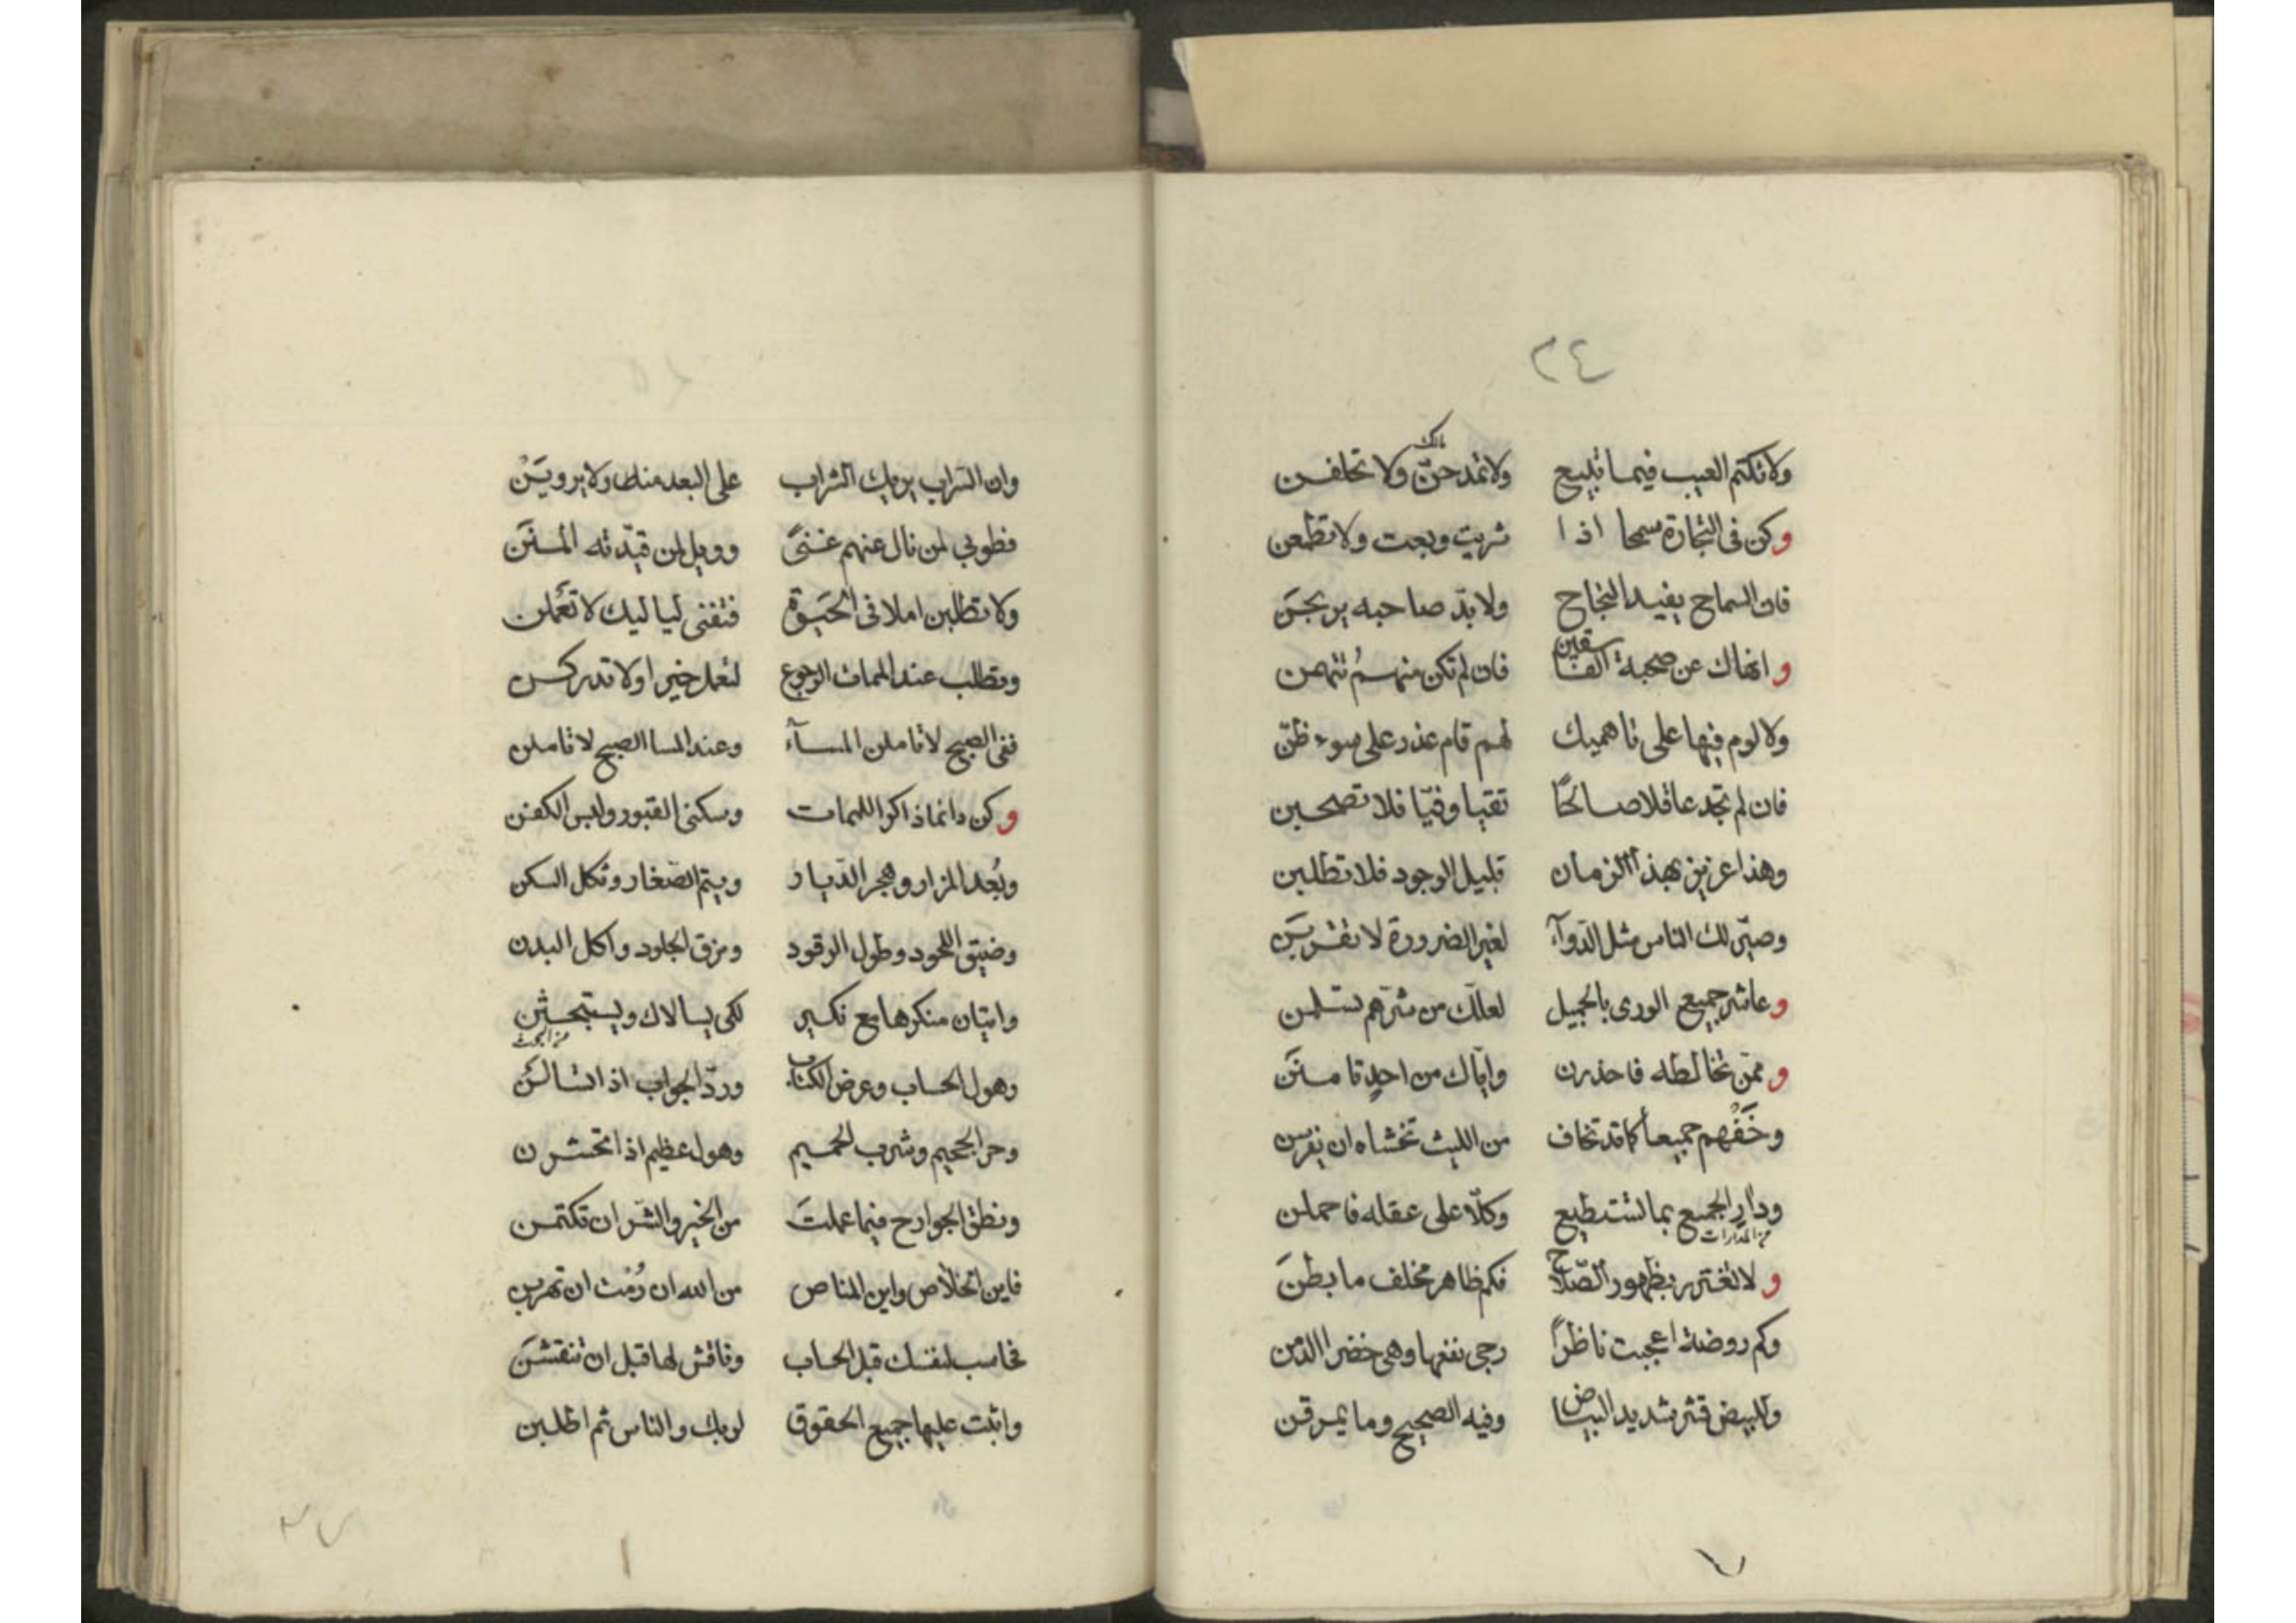 ٢٤
مالك
ولا تكتم العيب فيما تبيع ولا تمدحنّ ولا تحلفن
وكن فى التجارة سمحا اذا شريت وبعت ولا تطمعن
فان السماح يفيد النجاح ولا بدّ صاحبه يربحنَ
وانهاك عن صحبة الفاسقين فان لم تكن منهمُ تتهمن
ولا لوم فيها على تاهميك لهم قام عذر على سوء ظنّ
فان لم تجد عاقلا صالحًا تقيا وفيّا فلا تصحبن
وهذا عزيز بهذا الزمان قليل الوجود فلا تطلبن
وصيّر لك الناس مثل الدّوآء لغير الضرورة لا تقربنَ
وعاشر جميع الورى بالجميل لعلّك من شرّهم تسلمن
وممّن تخالطه فاحذرن وايّاك من احدٍ تامننَ
وخَفْهم جميعاً كما قد تخاف من الليث تخشاه ان يفرسن
ودارِ الجميع بما تستطيع وكلّا على عقله فاحملن
من المدارات
ولا تغترر بظهور الصّلاح فكم ظاهر مخلف ما بطنَ
وكم روضة اعجبت ناظراً رجى نفعها وهى خضرا الدّمن
وللبيض قشر شديد البياض وفيه الصحيح وما يمرقن
وان السّراب يريك الشراب على البعد منك ولا يرويَنْ
فطوبي لمن نال عنهم غنىً وويل لمن قيّدته المننَ
ولا تطلبن املا فى الحَيٰوة فتفنى لياليك لا تعملن
وتطلب عند الممات الرجوع لتعمل خيرا ولا تدركن
ففى الصبح لا تاملن المسآء وعند المسا الصبح لا تاملن
وكن دائما ذاكرا للممات وسكنى القبور ولبس الكفن
وبُعد المزار وهجر الدّيار ويتم الصّغار وثكل السكن
وضيق اللحود وطول الرقود ومزق الجلود واكل البدن
واتيان منكرها مع نكير لكى يسالاك ويستبحثن
من البحث
وهول الحساب وعرض الكتاب وردّ الجواب اذا تسالنَ
وحر الجحيم وشرب الحميم وهول عظيم اذا تحشرن
ونطق الجوارح فيما عملتَ من الخير والشّر ان تكتمن
فاين الخلاص واين المناص من الله ان رُمْت ان تهربن
فحاسب لنفسك قبل الحساب وناقش لها قبل ان تنقشنَ
واثبت عليها جميع الحقوق لربك والناس ثم اطلبن